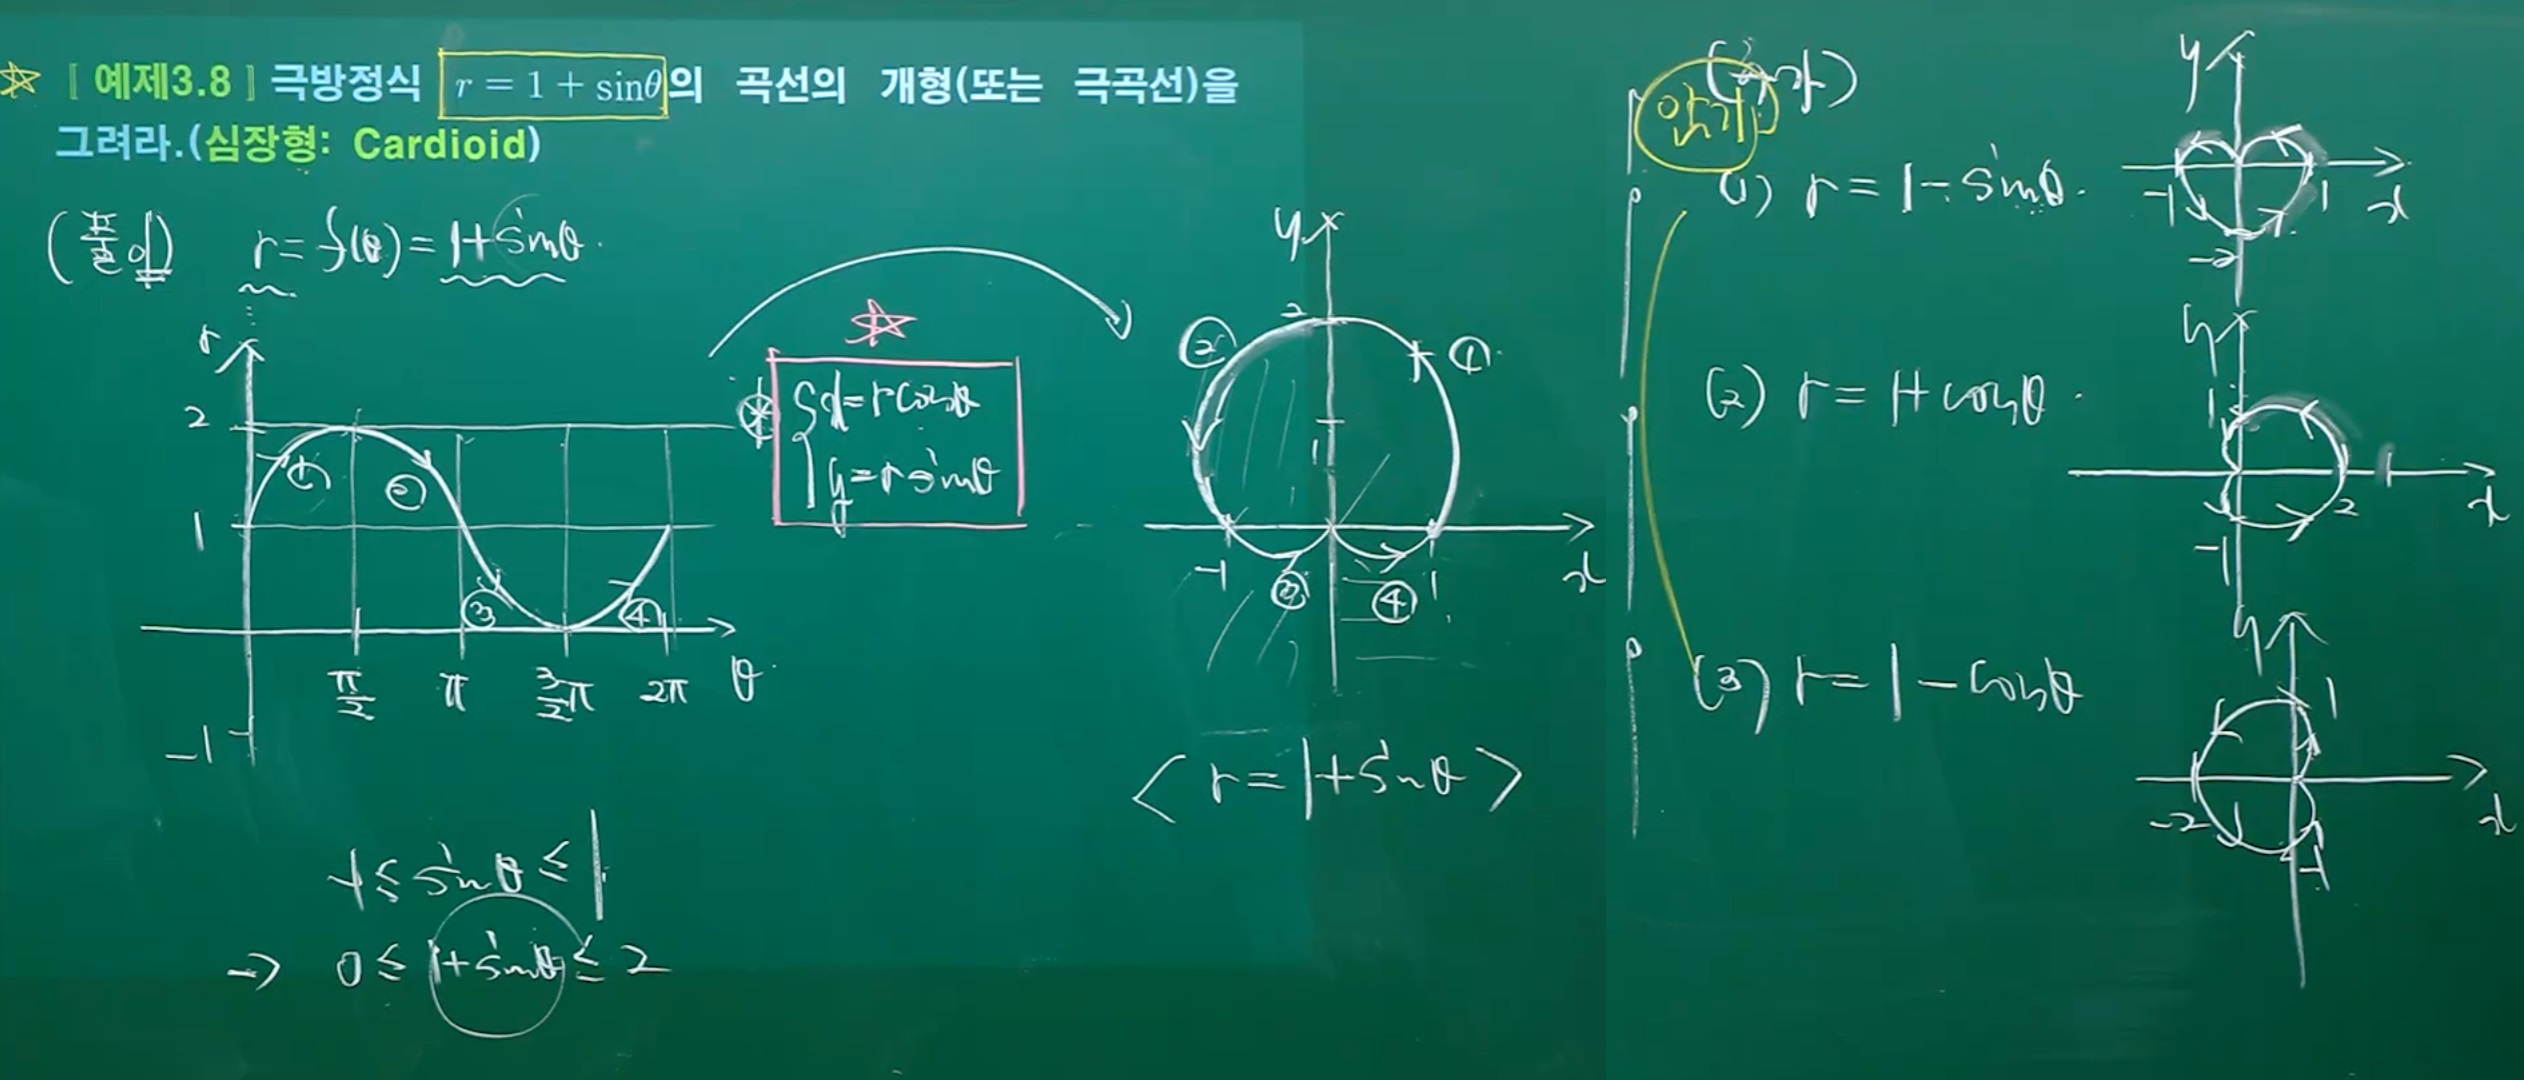 [예제3.8] 극방정식 r = 1 + sinθ의 곡선의 개형(또는 극곡선)을
그려라.(심장형: Cardioid)
(풀이) r = f(θ) = 1 + sinθ.
r
2
1
-1
① ② ③ ④
π/2 π 3/2π 2π θ
-1 ≤ sinθ ≤ 1
→ 0 ≤ 1 + sinθ ≤ 2
⊛ { x = r cosθ
y = r sinθ
y
2
② ①
1
-1 ③ ④ 1 x
< r = 1 + sinθ >
암기
(1) r = 1 - sinθ.
y
-1 1 x
-2
(2) r = 1 + cosθ.
y
1
2 x
-1
(3) r = 1 - cosθ
y
1
-2 x
-1